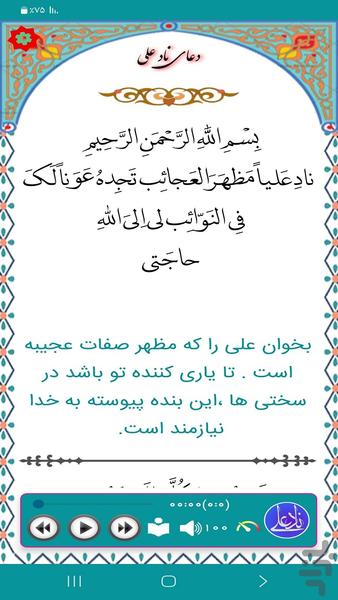 ٪۷۵
دعای ناد علی
بِسْمِ اللهِ الرَّحْمَنِ الرَّحِيمِ
نادِ عَلياً مَظهَرَ العَجائِب تَجِدهُ عَوناً لَکَ
فِي النَوّائِب لی اِلیَ اللهِ
حاجَتی
بخوان علی را که مظهر صفات عجیبه
است . تا یاری کننده تو باشد در
سختی ها ،این بنده پیوسته به خدا
نیازمند است.
۰۰:۰۰(۰:۰)
۱۰۰
ناد علی
بازار